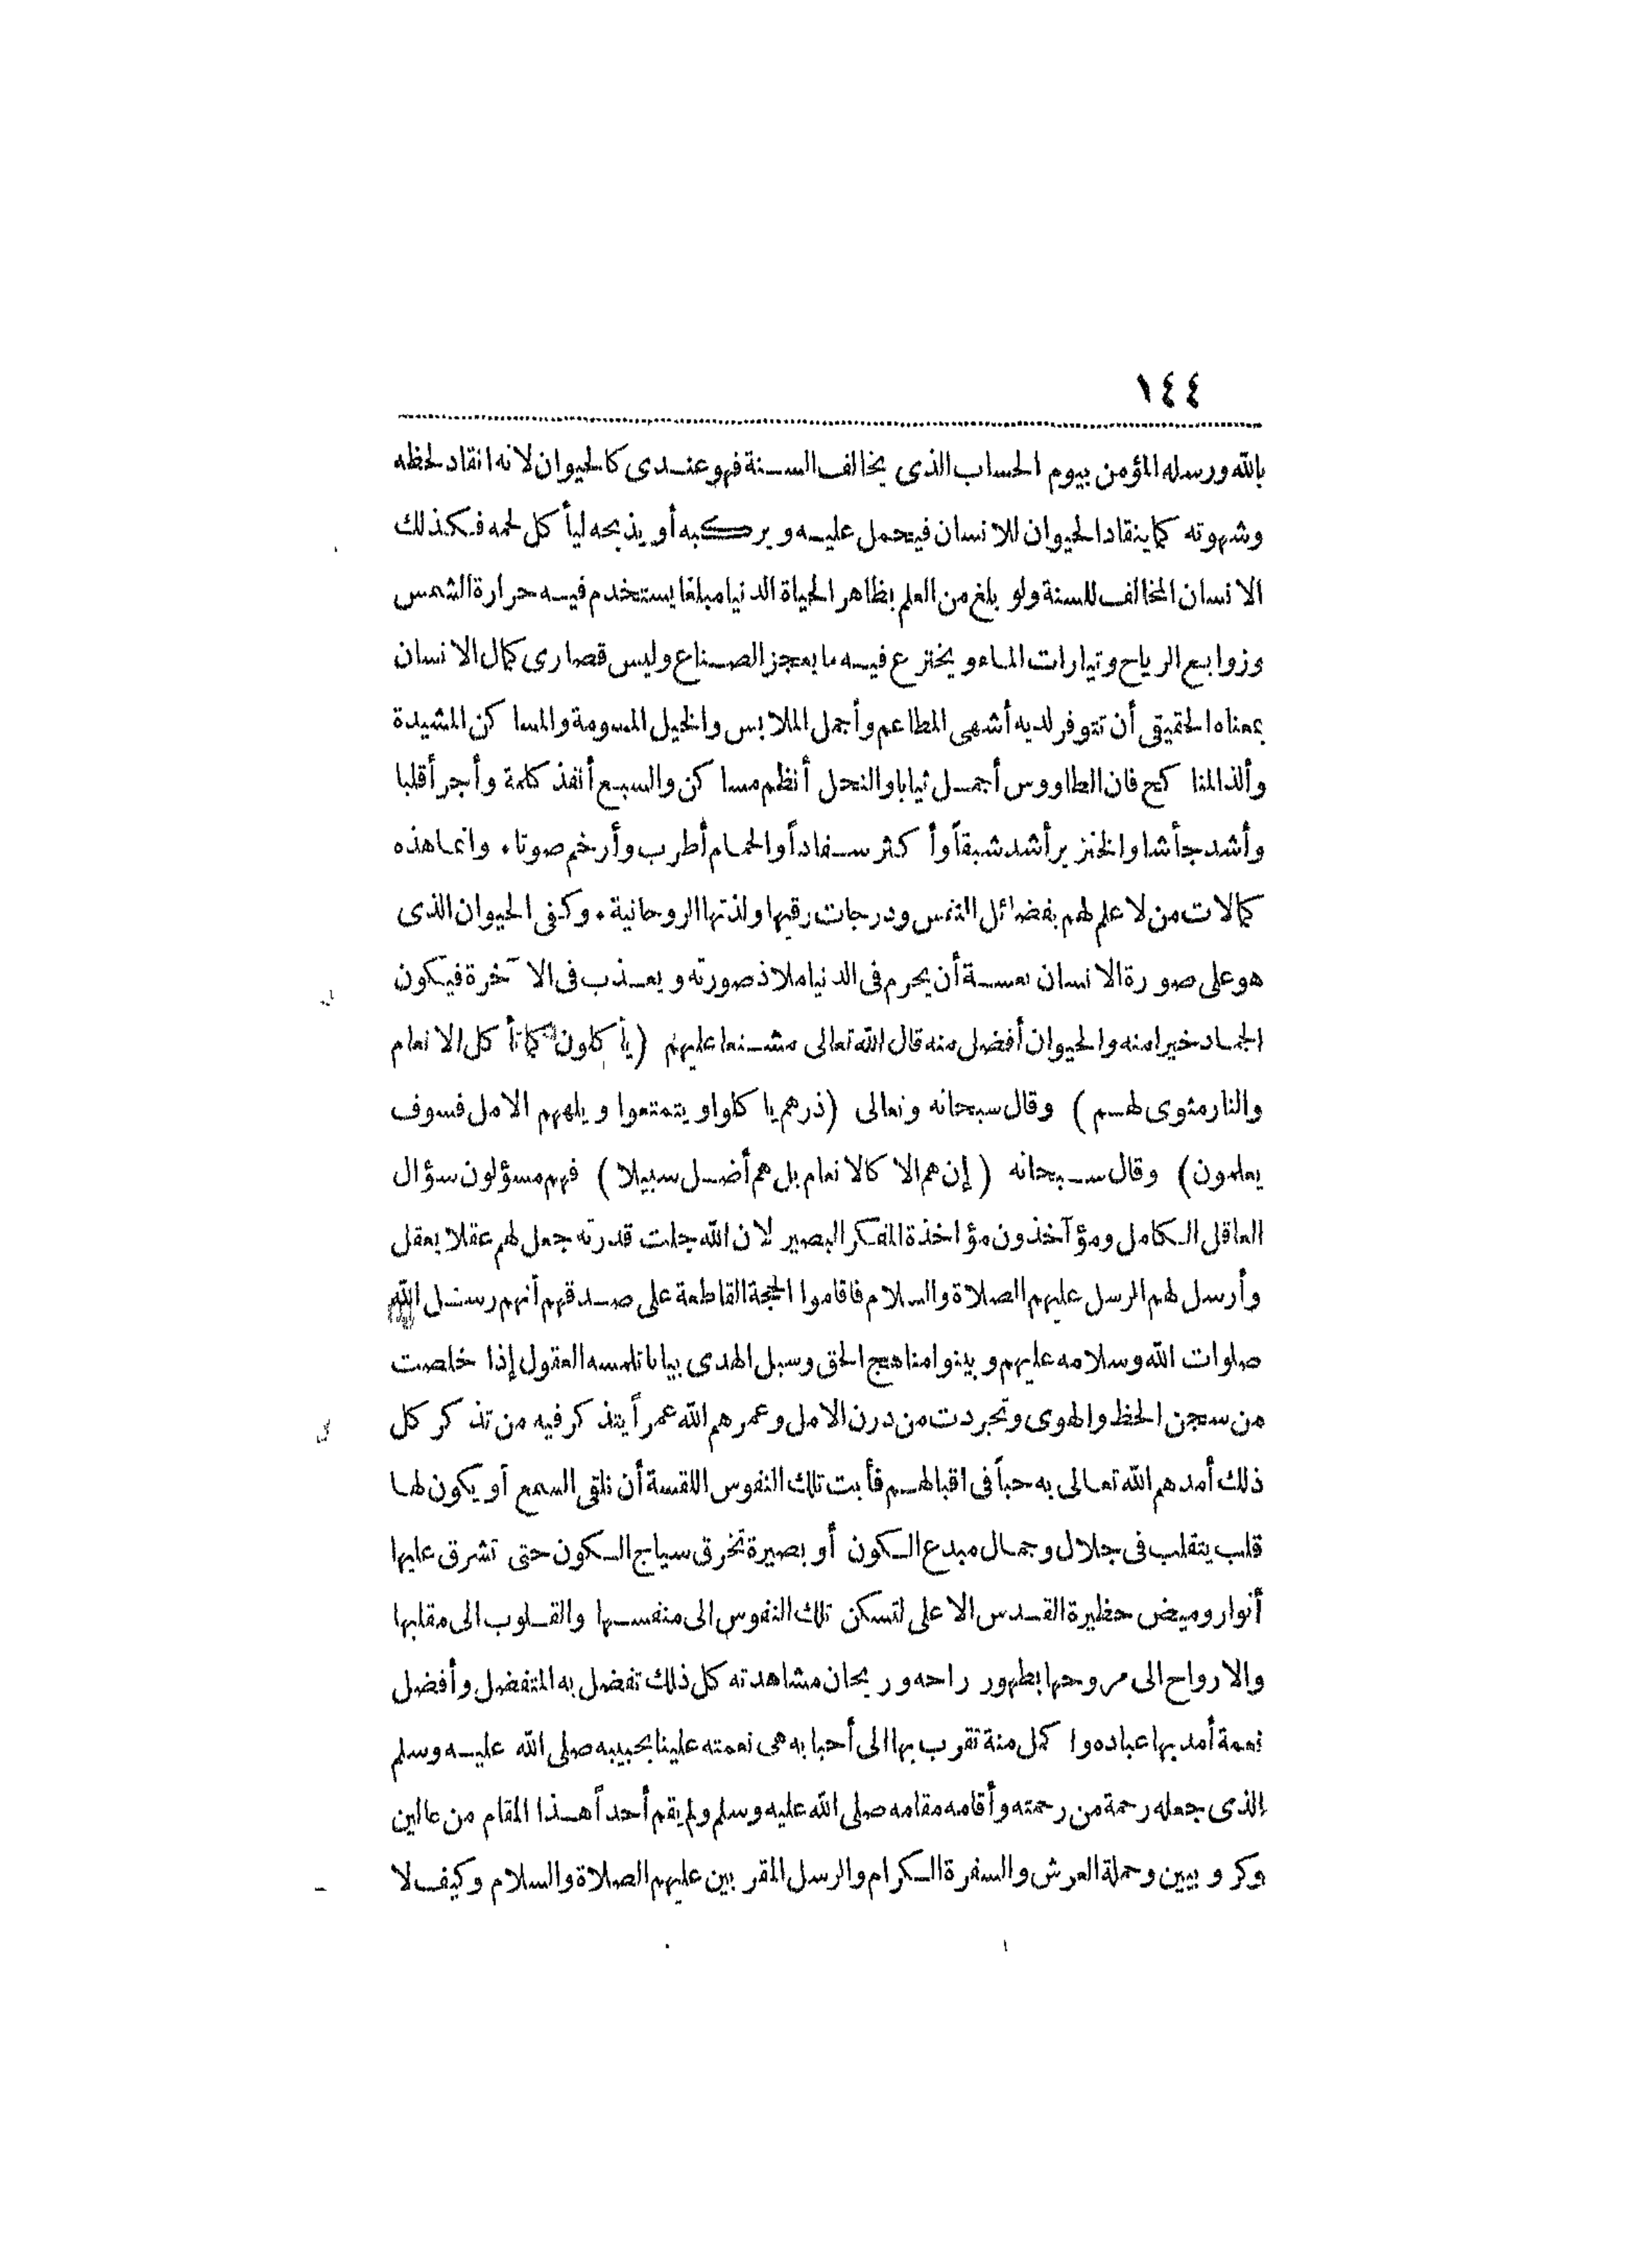 ١٤٤
بالله ورسله المؤمن بيوم الحساب الذى يخالف السنة فهو عندى كالحيوان لانه انقاد لحظه
وشهوته كما ينقاد الحيوان للانسان فيحمل عليه و يركبه أو يذبحه ليأكل لحمه فكذلك
الانسان المخالف للسنة ولو بلغ من العلم بظاهر الحياة الدنيا مبلغا يستخدم فيه حرارة الشمس
وزوابع الرياح وتيارات الماء و يخترع فيه ما يعجز الصناع وليس قصارى كمال الانسان
بمعناه الحقيقى أن تتوفر لديه أشهى المطاعم وأجمل الملابس والخيل المسومة والمساكن المشيدة
وألذ المناكح فان الطاووس أجمل ثيابا والنحل أنظم مساكن والسبع أنفذ كلمة وأجرأ قلبا
وأشد جأشا والخنزير أشد شبقاً وأكثر سفاداً والحمام أطرب وأرخم صوتا . وانما هذه
كمالات من لا علم لهم بفضائل النفس ودرجات رقيها ولذتها الروحانية . وكفى الحيوان الذى
هو على صورة الانسان تعسة أن يحرم فى الدنيا ملاذ صورته و يعذب فى الآخرة فيكون
الجماد خيرا منه والحيوان أفضل منه قال الله تعالى مشنعا عليهم (يأكلون كما تأكل الانعام
والنار مثوى لهم ) وقال سبحانه وتعالى (ذرهم يا كلوا و يتمتعوا و يلههم الامل فسوف
يعلمون) وقال سبحانه ( إن هم الا كالانعام بل هم أضل سبيلا ) فهم مسؤلون سؤال
العاقل الكامل ومؤآخذون مؤاخذة المفكر البصير لان الله جلت قدرته جعل لهم عقلا يعقل
وأرسل لهم الرسل عليهم الصلاة والسلام فاقاموا الحجة القاطعة على صدقهم أنهم رسل الله
صلوات الله وسلامه عليهم و بينوا مناهج الحق وسبل الهدى بيانا تلمسه العقول إذا خلصت
من سجن الحظ والهوى وتجردت من درن الامل وعمرهم الله عمراً يتذكر فيه من تذكر كل
ذلك أمدهم الله تعالى به حباً فى اقبالهم فأبت تلك النفوس اللقسة أن تلقى السمع أو يكون لها
قلب يتقلب فى جلال وجمال مبدع الكون أو بصيرة تخرق سياج الكون حتى تشرق عليها
أنوار وميض حظيرة القدس الاعلى لتسكن تلك النفوس الى منفسها والقلوب الى مقلبها
والارواح الى مروحها بطهور راحه و ريحان مشاهدته كل ذلك تفضل به المتفضل وأفضل
نعمة أمد بها عباده وا كمل منة تقرب بها الى أحبابه هى نعمته علينا بحبيبه صلى الله عليه وسلم
الذى جعله رحمة من رحمته وأقامه مقامه صلى الله عليه وسلم ولم يقم أحداً هذا المقام من عالين
وكرو بيين وحملة العرش والسفرة الكرام والرسل المقربين عليهم الصلاة والسلام وكيف لا